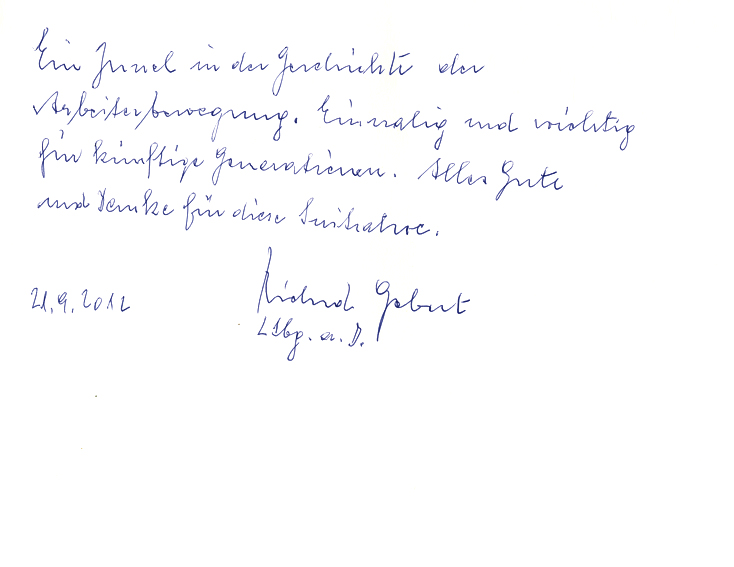 Ein Juwel in der Geschichte der
Arbeiterbewegung. Einmalig und wichtig
für künftige Generationen. Alles Gute
und Danke für diese Initiative.
21.9.2012
Richard Gebert
LAbg. a. D.